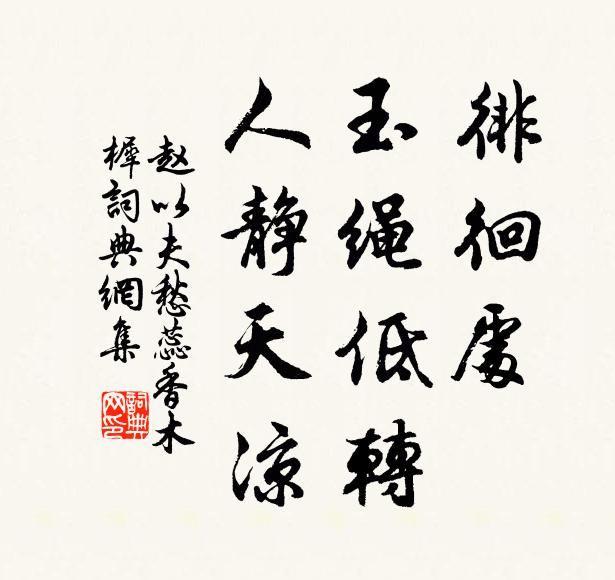 徘徊處
玉绳低轉
人静天涼
赵以夫愁蕊香木
樨詞典網集
詞典
网印